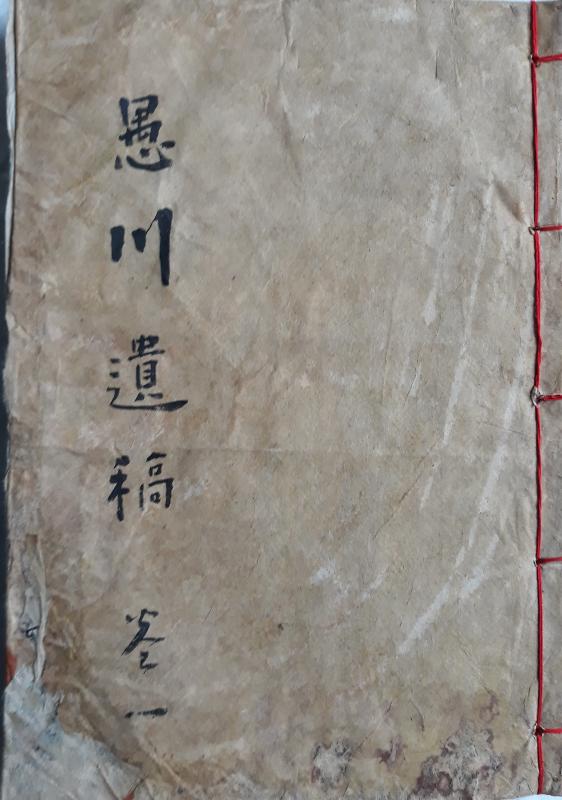 愚川遺稿 卷一